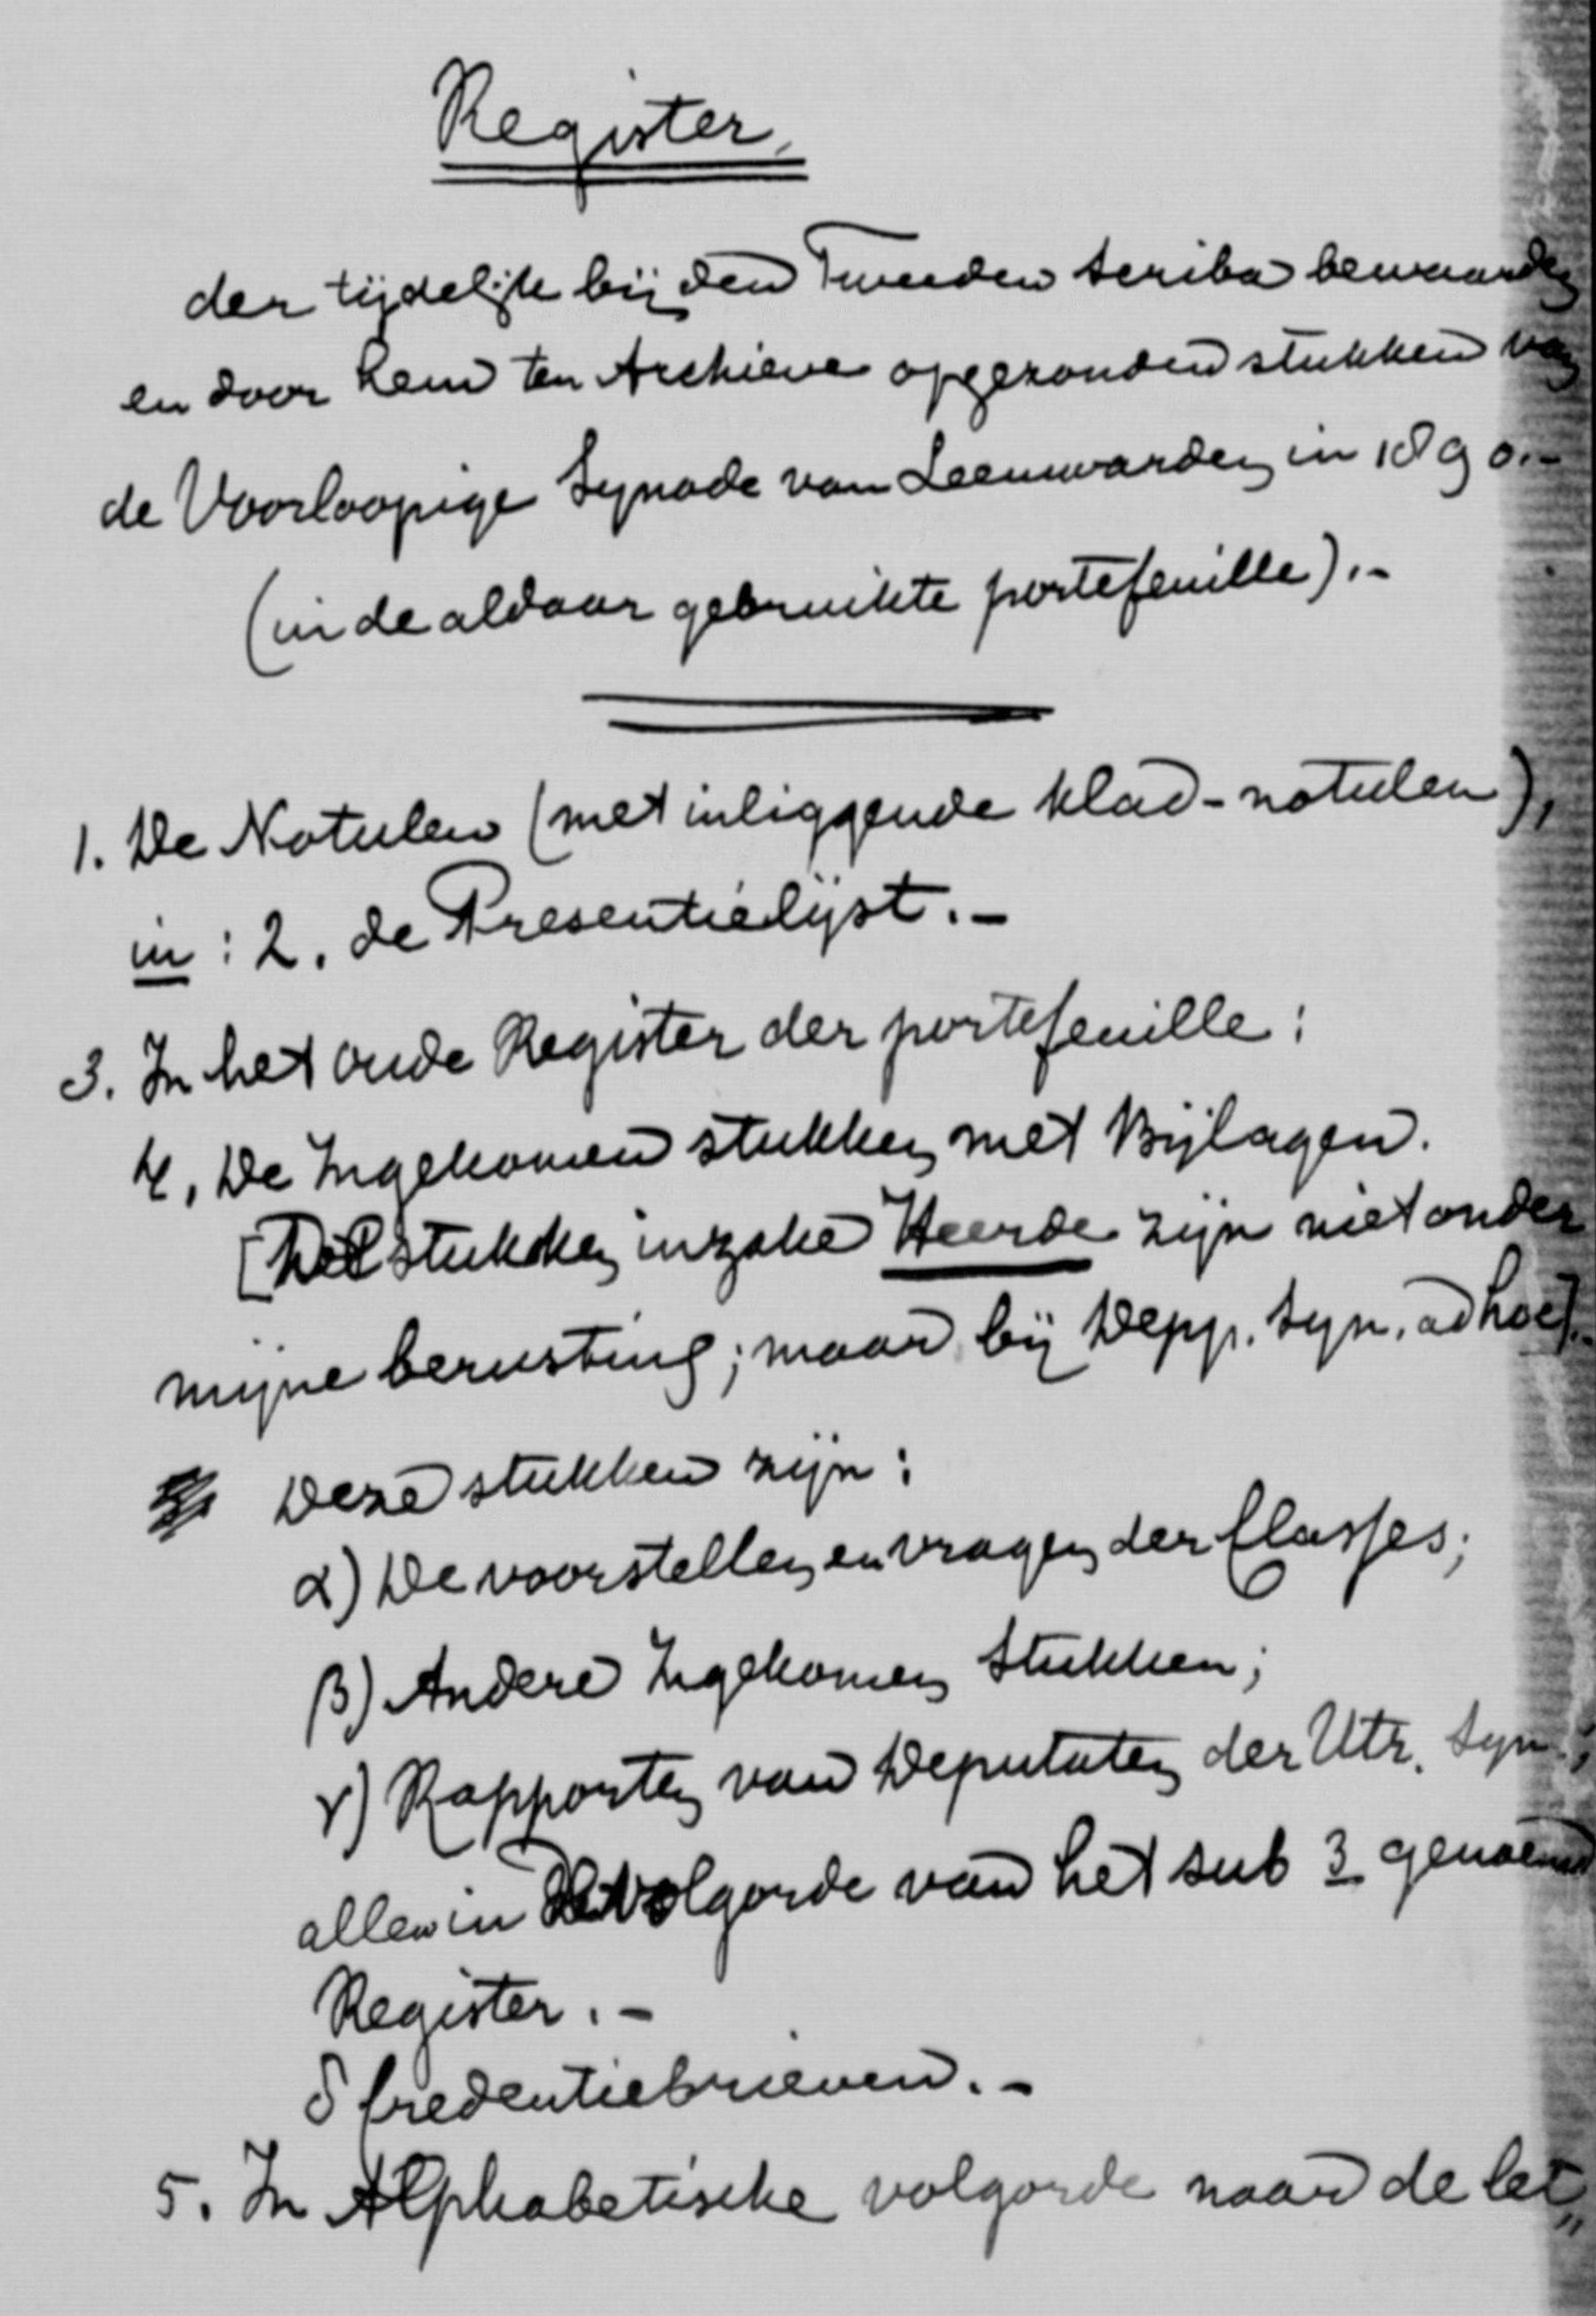 Register.
der tijdelijk bij den Tweeden Scriba bewaarde
en door hem ten Archieve opgezonden stukken van
de Voorloopige Synode van Leeuwarden in 1890.-
(in de aldaar gebruikte portefeuille).-
1. De Notulen (met inliggende klad-notulen),
in: 2. de Presentielijst.-
3. In het oude Register der portefeuille:
4. De Ingekomen stukken met Bijlagen.
[De stukken inzake Heerde zijn niet onder
mijne berusting; maar bij Depp. Syn. ad hoc].-
Deze stukken zijn:
α) De voorstellen en vragen der Classes;
β) Andere Ingekomen Stukken;
γ) Rapporten van Deputaten der Utr. Syn.;
allen in volgorde van het sub 3 genoemd
Register.-
δ Credentiebrieven.-
5. In Alphabetische volgorde naar de let„